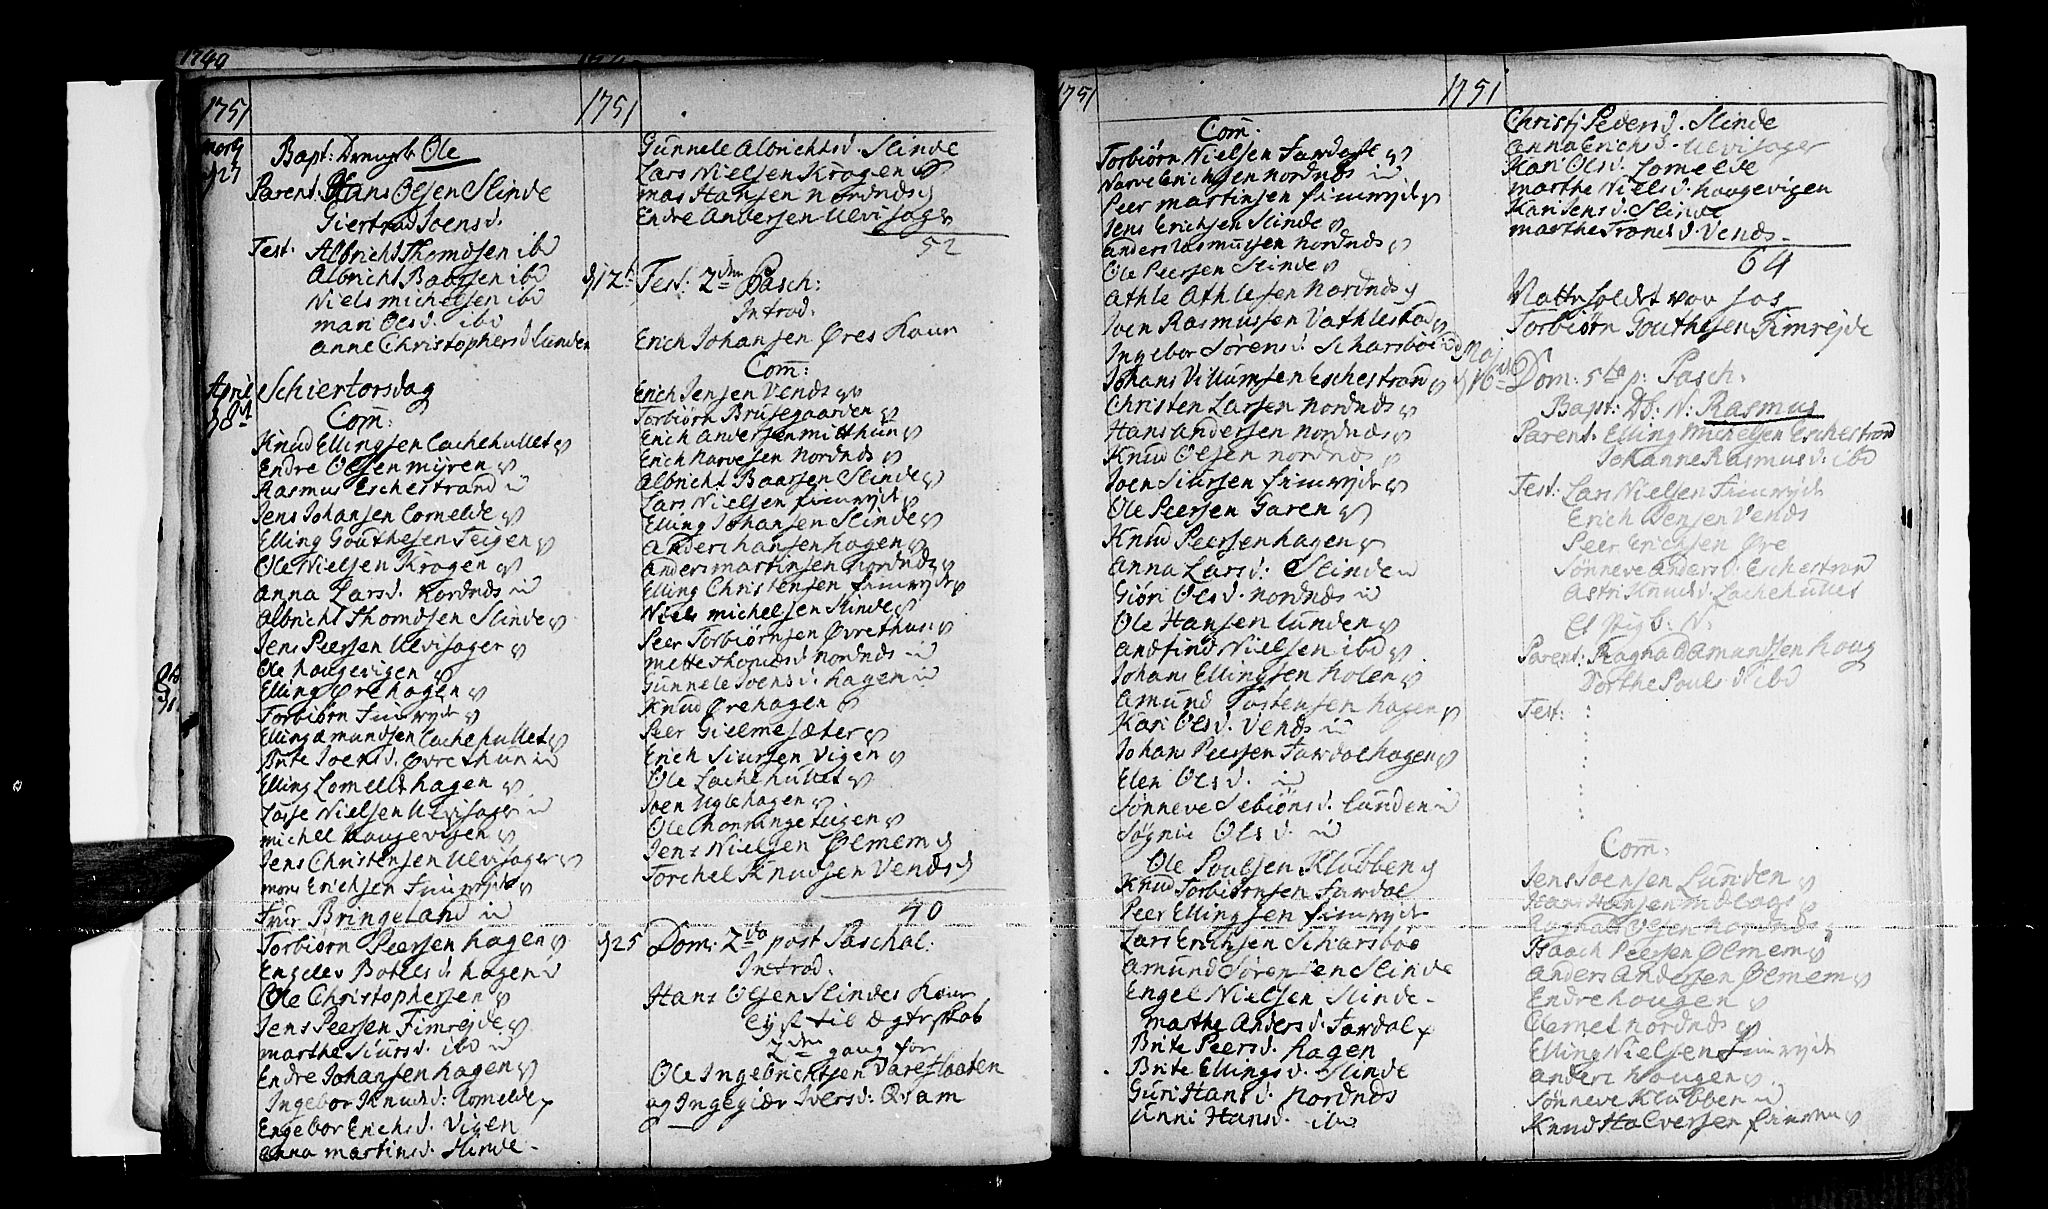 1749
1751
1751
Bapt: Drengeb: Ole
Parent. Hans Olsen Slinde
Giertrud Joensd.
Test. Albricht Thomæsen ibd
Albricht Baarsen ibd
Niels michelsen ibd
mari Olsd. ibd
anne Christophersd Lunden
April
Schiertorsdag
Com:
Knud Ellingsen Lachehullet
Endre Olsen myren
Rasmus Eschestrand
Jens Johansen Lomelde
Elling Gouthesen Teigen
Ole Nielsen Kragen
anna Larsd. Nordnds
Albricht Thomæsen Slinde
Jens Peersen Ulvisager
Ole hougevigen
Elling Ørehagen
Torbiørn Fimrejte
Elling amundsen Lachehullet
Brite Joensd. Øvrethun
Elling Lomeldshagen
Lasse Nielsen Ulvisager
michel hougevigen
Jens Christensen Ulvisager
mons Erichsen Fimrejte
Bringeland
Torbiørn Peersen hagen
Engelev Botelsd. hagen
Ole Christophersen
Jens Peersen Fimrejde
marthe Siursd. ibd
Endre Johansen hagen
Ingebor Knudsd. Lomelde
Engebor Erichsd. Vigen
anna martinsd. Slinde
Gunnele Albrichtsd. Slinde
Lars Nielsen Kragen
mas Hansen Nordnds
Endre Andersen Ulvisager
52
12t Fest: 2den Pasch:
Introd.
Erich Johansen Øres Kone
Com:
Erich Jensen Vends
Torbiørn Brusegaarden
Erich andersen mitthun
Erich Narvesen Nordnds
Albricht Baarsen Slinde
Lars Nielsen fimrejte
Elling Johansen Slinde
anders hansen hagen
anders martinsen Nordnds
Elling Christensen fimrejte
Niels michelsen Slinde
Peer Torbiørnsen Øvrethun
mette thomæsd Nordnds
Gunnele Joensd. hagen
Knud Ørehagen
Peer Gielmesæter
Erich Siursen Vigen
Ole Lachehullet
Joen Uglehagen
Ole honningeteigen
Jens Nielsen Ølmem
Torchel Knudsen Vends
40
25 Dom: 2da post Paschal:
Introd.
Hans Olsen Slindes Kone
lyst til ægteskab
2den gang for
Ole Ingebrichtsen Vareslaaten
og Ingegiær Iversd: Qvam
1751
1751
Com:
Torbiørn Nielsen Fardale
Narve Erichsen Nordnds
Peer martinsen fimrejte
Jens Erichsen Slinde
anders Rasmussen Nordnds
Ole Peersen Slinde
Athle Athlesen Nordnds
Joen Rasmussen Vathlestad
Ingebor Sørensd. Scharsboe
Johans Villumsen Eschestrand
Christen Larsen Nordnds
Hans andersen Nordnds
Knud Olsen nordnds
Joen Siursen fimrejte
Ole Peersen Garen
Knud Peersen hagen
anna Larsd: Slinde
Giøri Olsd. nordnds
Ole Hansen Lunden
andfind Nielsen ibd
Johans Ellingsen holen
amund Tostensen hagen
Kari Olsd. Vends
Johans Peersen Fardalhagen
Elen Olsd.
Sønneve Sebiønsd. Lunden
Søgnie Olsd.
Ole Poulsen Klubben
Knud Torbiørnsen Fardal
Peer Ellingsen fimrejte
Lars Erichsen Scharsboe
Amund Sørensen Slinde
Engel Nielsen Slinde
marthe Andersd. Fardal
Brite Peersd. hagen
Brite Ellingsd. Slinde
Guri Hansd Nordnds
Unni Hansd. ibd
Christj Pedersd. Slinde
anna Erichsd. Ulvisager
Kari Olsd. Lomelde
marthe Nielsd. hougevigen
Kari Jensd. Slinde
marthe Trondsd. Vends
64
Natte holdet var hos
Torbiørn Gouthesen Fimrejde
Maj
16de Dom: 5ta p: Pasch.
Bapt: Db: N: Rasmus
Parent. Elling Michelsen Eschestrand
Johanne Rasmusd. ibd
Test: Lars Nielsen Fimrejte
Erich Jensen Vends
Peer Erichsen Øre
Sønneve Andersd. Eschestrand
Astri Knudsd. Lachehullet
Et Pigb: N:
Parent: Ragna Damundsen houg
Dorthe Poulsd ibd
Test:
Com:
Jens Joensen Lunden
Hans Hansen indlags
Ragnald Olsen Nordnds
Isaach Peersen Ølmem
Anders Andersen Ølmem
Endre hougen
Clemet nordnds
Elling Nielsen Fimrejte
anders hougen
Sønneve Klubben
Knud Halversen fimrejte